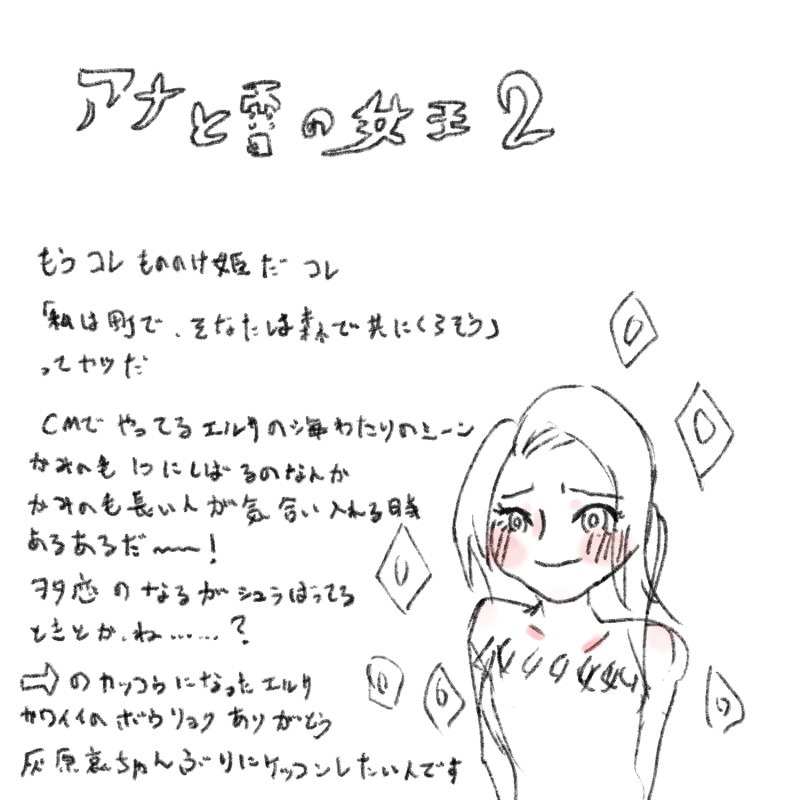 アナと雪の女王2
もうコレもののけ姫だコレ
「私は町で、そなたは森で共にくらそう」
ってヤツだ
CMでやってるエルサの海わたりのシーン
かみのも1つにしばるのなんか
かみのも長い人が気合い入れる時
あるあるだ〜〜!
ヲタ恋のなるがシュラばってる
ときとか、ね……?
⇨のカッコウになったエルサ
カワイイのボウリョクありがとう
灰原哀ちゃんぶりにケッコンしたい人です